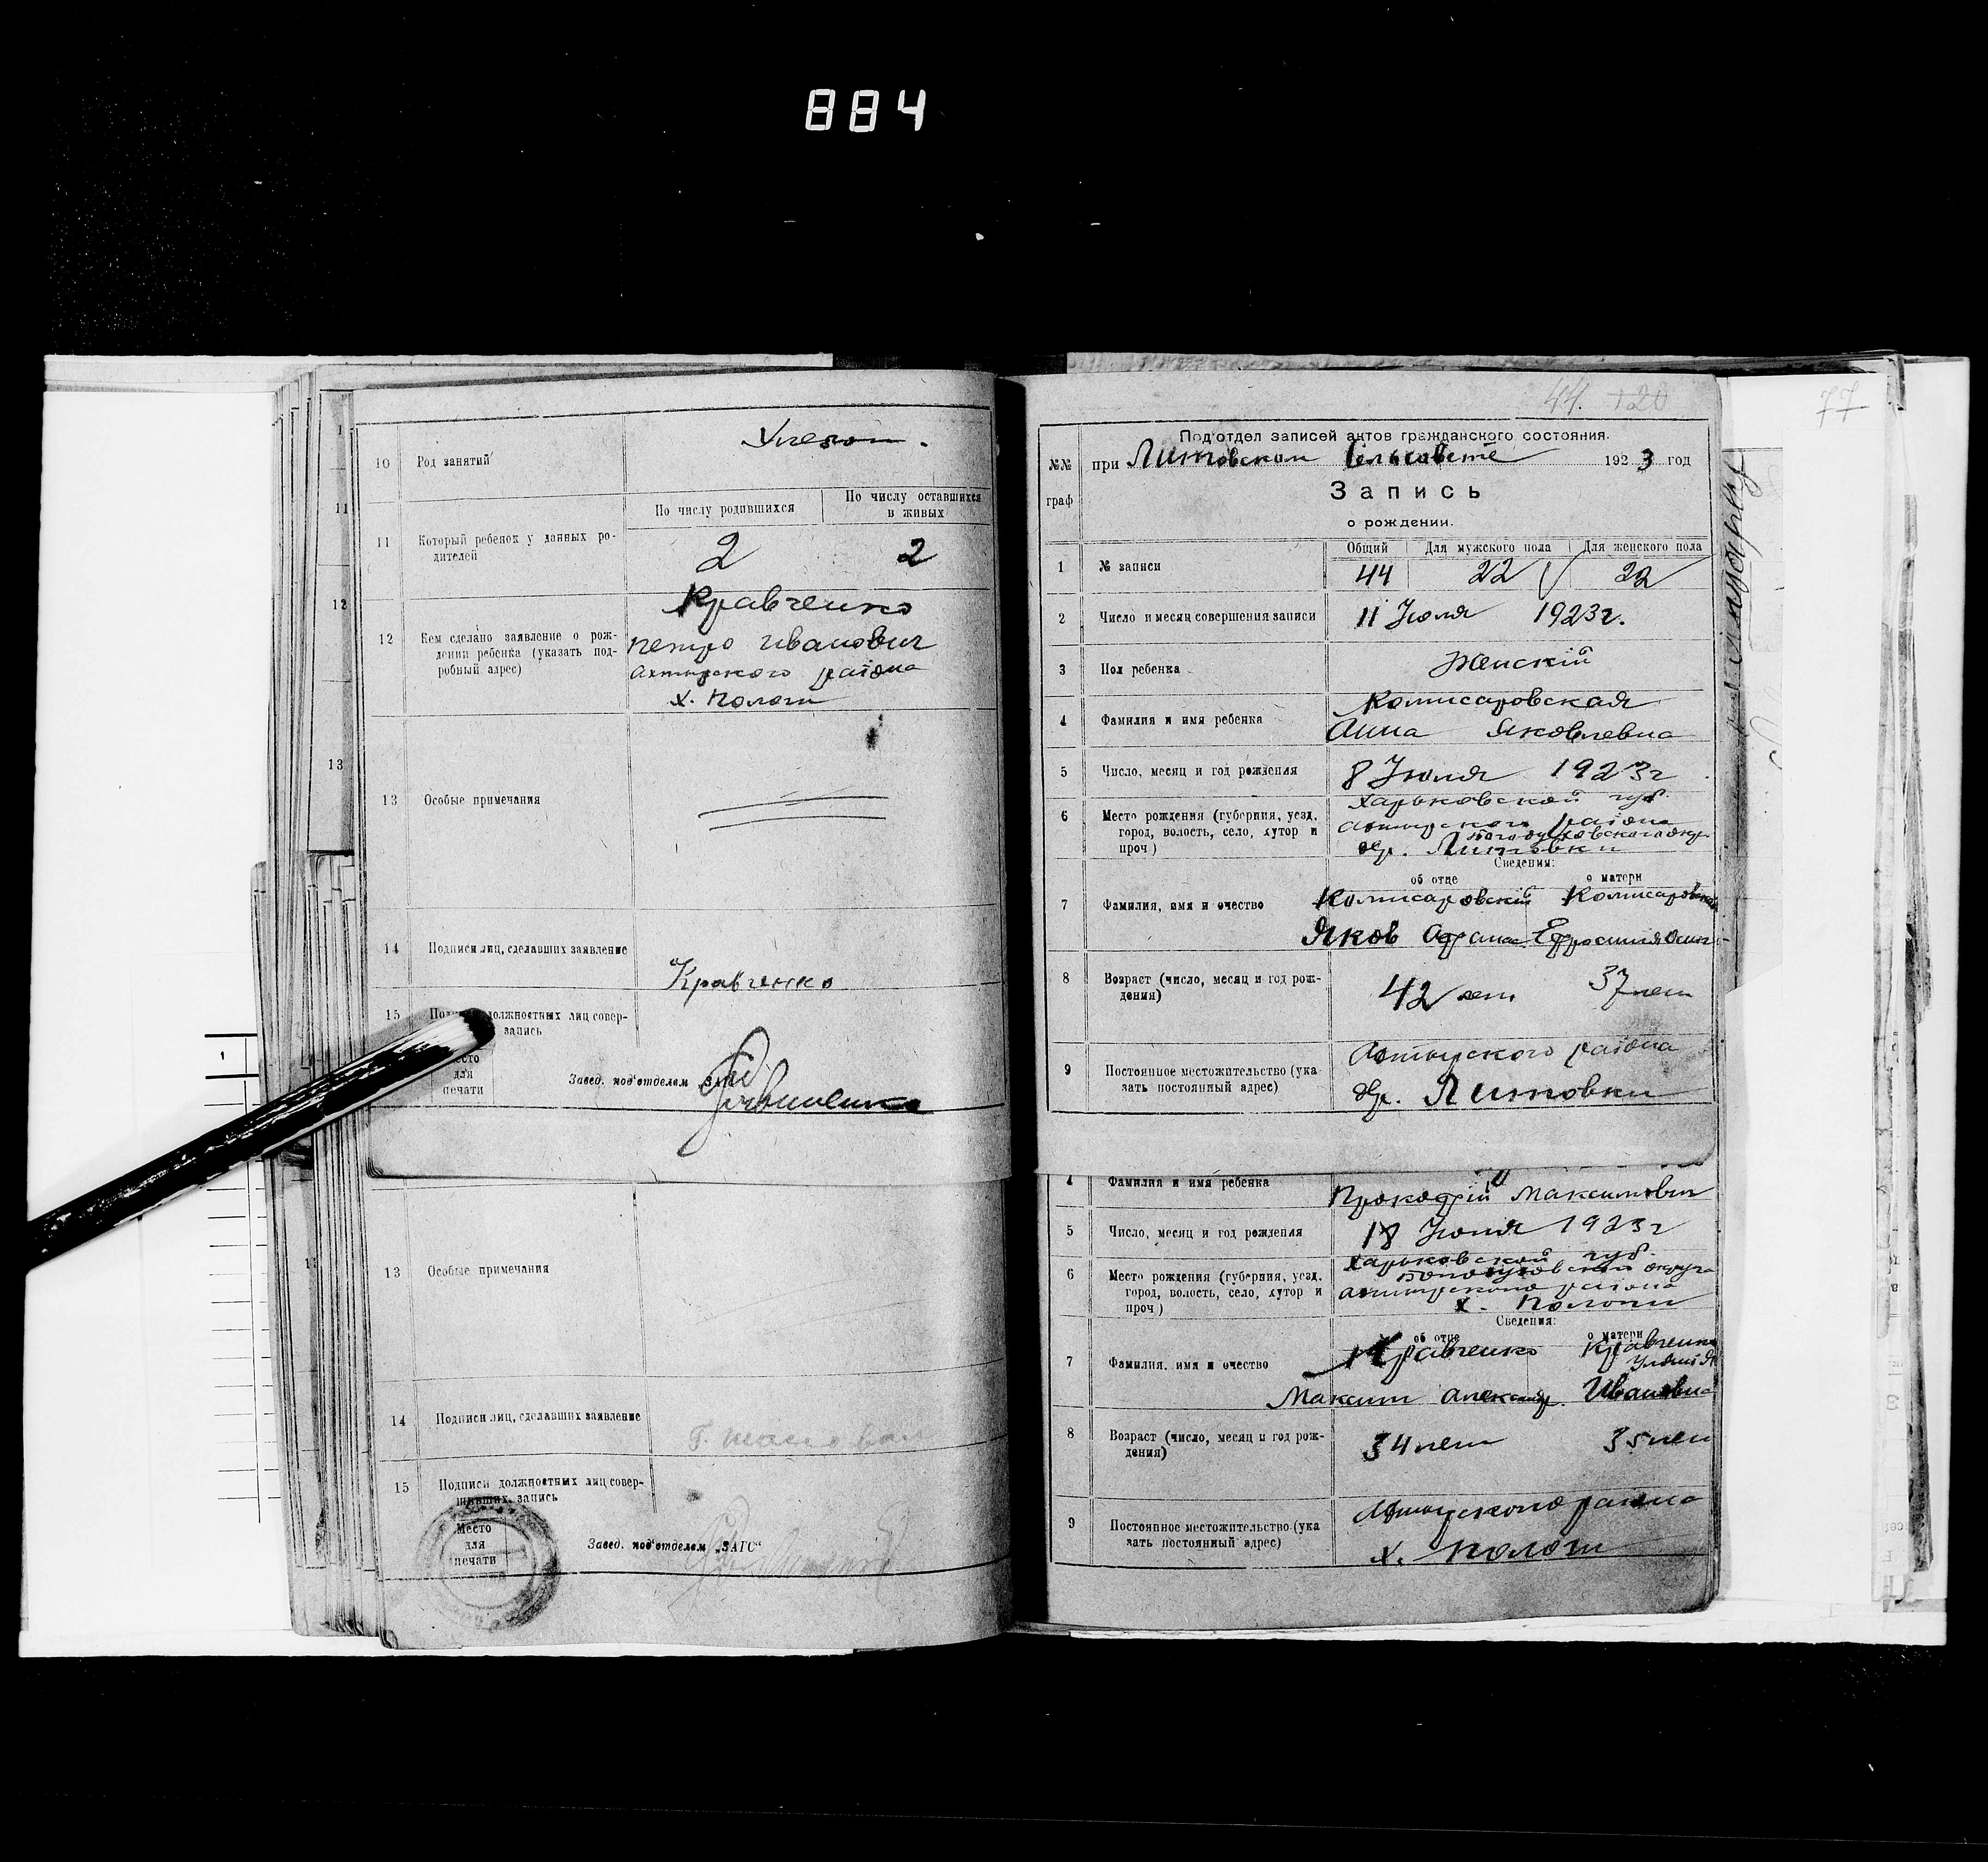 884
10 Род занятий
Хлебоп.
11 Который ребенок у данных ро-
дителей
По числу родившихся
По числу оставшихся
в живых
2 2
12 Кем сделано заявление о рож-
дении ребенка (указать под-
робный адрес)
Кравченко
Петро Иванович
Ахтырского района
х. Пологи
13 Особые примечания
14 Подписи лиц, сделавших заявление
Кравченко
15 должностных лиц совер-
запись
Место
для
печати
Завед. под'отделом „ЗАГС“
13 Особые примечания
14 Подписи лиц, сделавших заявление
15 Подписи должностных лиц совер-
шивших запись
Место
для
печати
Завед. под'отделом „ЗАГС“
44. 120
77
Под'отдел записей актов гражданского состояния.
№№ граф
при Литовском Сельсовете 1923 год
Запись
о рождении.
1 № записи
Общий Для мужского пола Для женского пола
44 22 22
2 Число и месяц совершения записи
11 Июля 1923г.
3 Пол ребенка
Женскій
4 Фамилия и имя ребенка
Комисаровская
Анна Яковлевна
5 Число, месяц и год рождения
8 Июля 1923г
6 Место рождения (губерния, уезд,
город, волость, село, хутор и
проч)
Харьковской губ.
Ахтырского района
Богодуховского окр.
др. Литовки
Сведения:
об отце о матери
7 Фамилия, имя и очество
Комисаровскій Комисаровская
Яков Афанас. Ефросиния
8 Возраст (число, месяц и год рож-
дения)
42 лет 37 лет
9 Постоянное местожительство (ука
зать постоянный адрес)
Ахтырского района
др. Литовки
4 Фамилия и имя ребенка
Прокофій Максимович
5 Число, месяц и год рождения
18 Июля 1923г
6 Место рождения (губерния, уезд,
город, волость, село, хутор и
проч)
Харьковской губ.
Богодуховскаго округа
Ахтырского района
х. Пологи
Сведения:
об отце о матери
7 Фамилия, имя и очество
Кравченко Кравченко
Максим Александр. Ивановна
8 Возраст (число, месяц и год рож-
дения)
34 лет 35 лет
9 Постоянное местожительство (ука
зать постоянный адрес)
Ахтырского района
х. Пологи